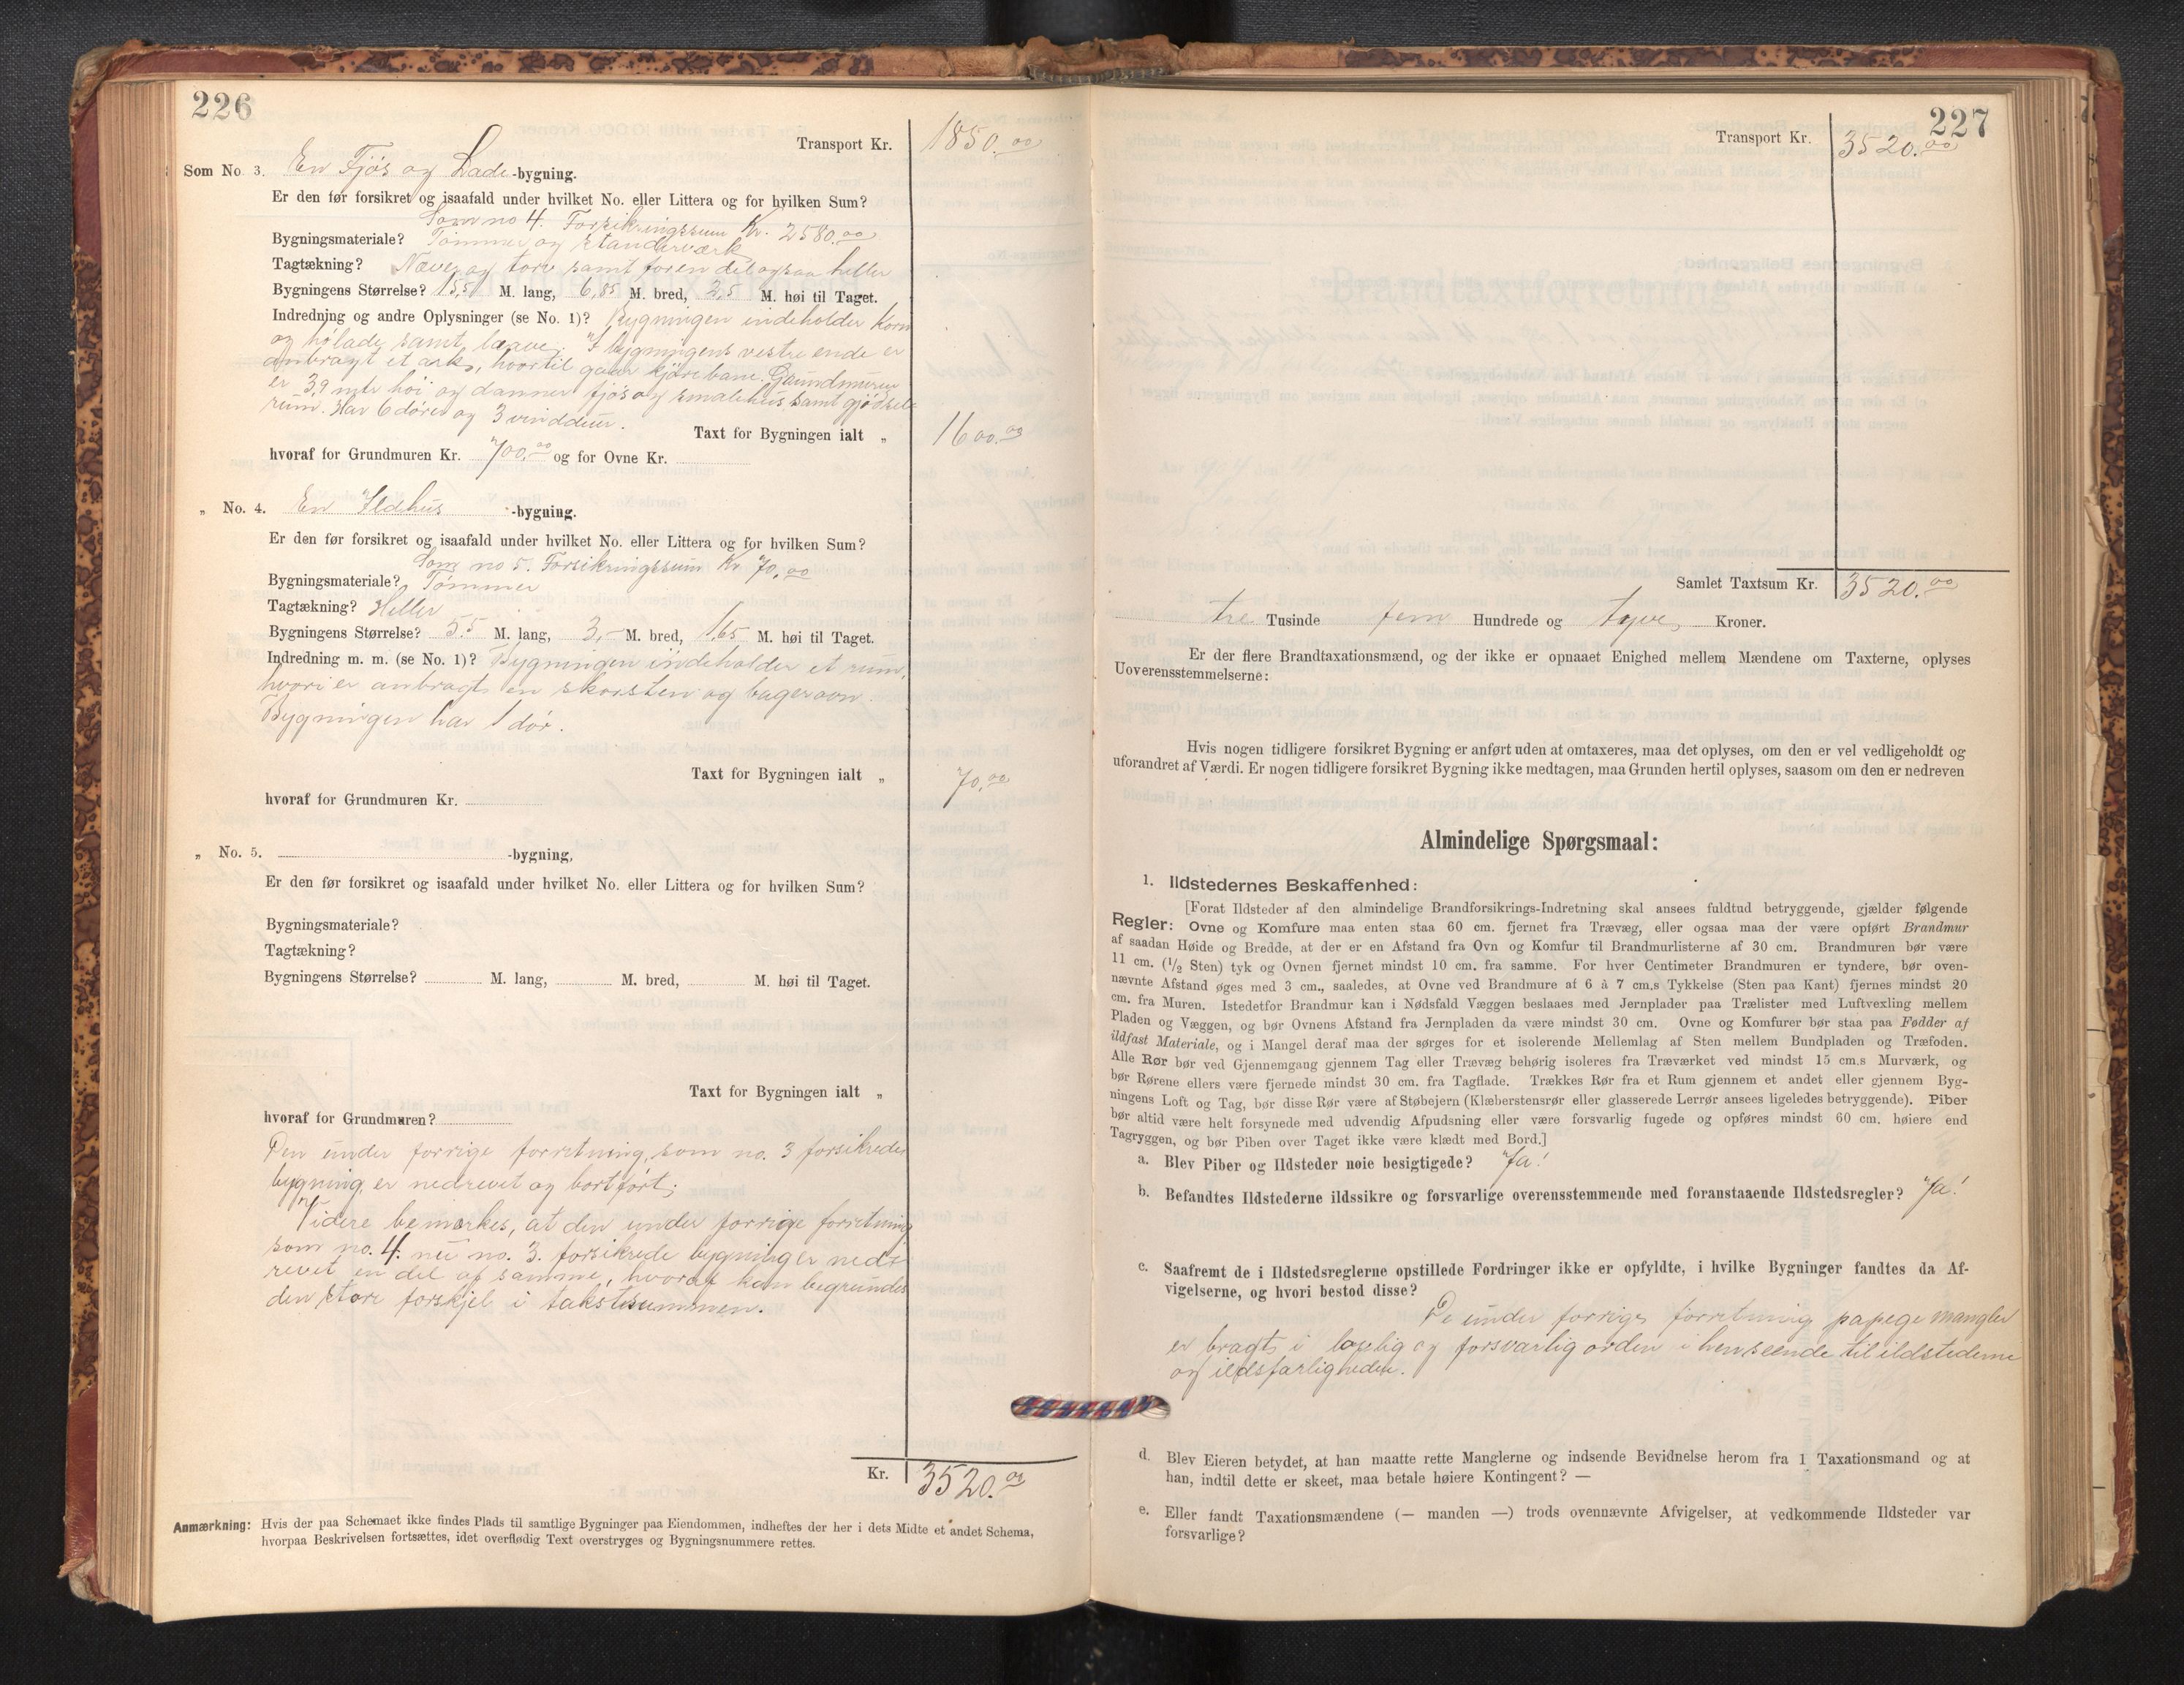 226
Transport Kr. 1850.00
Som No. 3. En Fjøs og Lade-bygning.
Er den før forsikret og isaafald under hvilket No. eller Littera og for hvilken Sum?
Som no 4. Forsikringssum Kr. 2580.00
Bygningsmateriale? Tømmer og standerværk
Tagtækning? Næver og torv samt for en del ogsaa heller
Bygningens Størrelse? 15,51 M. lang, 6,85 M. bred, 2,5 M. høi til Taget.
Indredning og andre Oplysninger (se No. 1)? Bygningen indeholder Korn
og hølade samt læave. I bygningens vestre ende er
anbragt et ark, hvortil gaar kjørebane. Grundmuren
er 3,9 mtr høi og danner fjøs og smalehus samt gjødsel
rum. Har 6 døre og 3 vindduer.
Taxt for Bygningen ialt „ 1600.00
hvoraf for Grundmuren Kr. 700.00 og for Ovne Kr.
„ No. 4. En Ildhus -bygning.
Er den før forsikret og isaafald under hvilket No. eller Littera og for hvilken Sum?
Som no 5. Forsikringssum Kr 70,00
Bygningsmateriale? Tømmer
Tagtækning? Heller
Bygningens Størrelse? 5,5 M. lang, 3,- M. bred, 1,65 M. høi til Taget.
Indredning m. m. (se No. 1)? Bygningen indeholder et rum,
hvori er anbragt en skorsten og bagerovn.
Bygningen har 1 dør.
Taxt for Bygningen ialt „ 70,00
hvoraf for Grundmuren Kr.
„ No. 5. -bygning,
Er den før forsikret og isaafald under hvilket No. eller Littera og for hvilken Sum?
Bygningsmateriale?
Tagtækning?
Bygningens Størrelse? M. lang, M. bred, M. høi til Taget.
Taxt for Bygningen ialt „
hvoraf for Grundmuren?
Den under forrige forretning, som no. 3 forsikrede
bygning, er nedrevet og bortført;
Videre bemærkes, at den under forrige forretning
som no. 4. nu no. 3. forsikrede bygning er ned-
revet en del af samme, hvoraf kan begrundes
den store forskjel i takstsummen.
Kr. 3520.00
Anmærkning: Hvis der paa Schemaet ikke findes Plads til samtlige Bygninger paa Eiendommen, indheftes der her i dets Midte et andet Schema,
hvorpaa Beskrivelsen fortsættes, idet overflødig Text overstryges og Bygningsnummere rettes.
227
Transport Kr. 3520.00
Samlet Taxtsum Kr. 3520.00
tre Tusinde fem Hundrede og tyve Kroner.
Er der flere Brandtaxationsmænd, og der ikke er opnaaet Enighed mellem Mændene om Taxterne, oplyses
Uoverensstemmelserne:
Hvis nogen tidligere forsikret Bygning er anført uden at omtaxeres, maa det oplyses, om den er vel vedligeholdt og
uforandret af Værdi. Er nogen tidligere forsikret Bygning ikke medtagen, maa Grunden hertil oplyses, saasom om den er nedreven
Almindelige Spørgsmaal:
1. Ildstedernes Beskaffenhed:
[Forat Ildsteder af den almindelige Brandforsikrings-Indretning skal ansees fuldtud betryggende, gjælder følgende
Regler: Ovne og Komfure maa enten staa 60 cm. fjernet fra Trævæg, eller ogsaa maa der være opført Brandmur
af saadan Høide og Bredde, at der er en Afstand fra Ovn og Komfur til Brandmurlisterne af 30 cm. Brandmuren bør være
11 cm. (1/2 Sten) tyk og Ovnen fjernet mindst 10 cm. fra samme. For hver Centimeter Brandmuren er tyndere, bør oven-
nævnte Afstand øges med 3 cm., saaledes, at Ovne ved Brandmure af 6 à 7 cm.s Tykkelse (Sten paa Kant) fjernes mindst 20
cm. fra Muren. Istedetfor Brandmur kan i Nødsfald Væggen beslaaes med Jernplader paa Trælister med Luftvexling mellem
Pladen og Væggen, og bør Ovnens Afstand fra Jernpladen da være mindst 30 cm. Ovne og Komfurer bør staa paa Fødder af
ildfast Materiale, og i Mangel deraf maa der sørges for et isolerende Mellemlag af Sten mellem Bundpladen og Træfoden.
Alle Rør bør ved Gjennemgang gjennem Tag eller Trævæg behørig isoleres fra Træværket ved mindst 15 cm.s Murværk, og
bør Rørene ellers være fjernede mindst 30 cm. fra Tagflade. Trækkes Rør fra et Rum gjennem et andet eller gjennem Byg-
ningens Loft og Tag, bør disse Rør være af Støbejern (Klæberstensrør eller glasserede Lerrør ansees ligeledes betryggende). Piber
bør altid være helt forsynede med udvendig Afpudsning eller være forsvarlig fugede og opføres mindst 60 cm. høiere end
Tagryggen, og bør Piben over Taget ikke være klædt med Bord.]
a. Blev Piber og Ildsteder nøie besigtigede? Ja!
b. Befandtes Ildstederne ildssikre og forsvarlige overensstemmende med foranstaaende Ildstedsregler? Ja!
c. Saafremt de i Ildstedsreglerne opstillede Fordringer ikke er opfyldte, i hvilke Bygninger fandtes da Af-
vigelserne, og hvori bestod disse?
De under forrige forretning papege mangler
er bragt i lovlig og forsvarlig orden i henseende til ildstederne
og ildsfarligheden.
d. Blev Eieren betydet, at han maatte rette Manglerne og indsende Bevidnelse herom fra 1 Taxationsmand og at
han, indtil dette er skeet, maa betale høiere Kontingent? —
e. Eller fandt Taxationsmændene (— manden —) trods ovennævnte Afvigelser, at vedkommende Ildsteder var
forsvarlige?